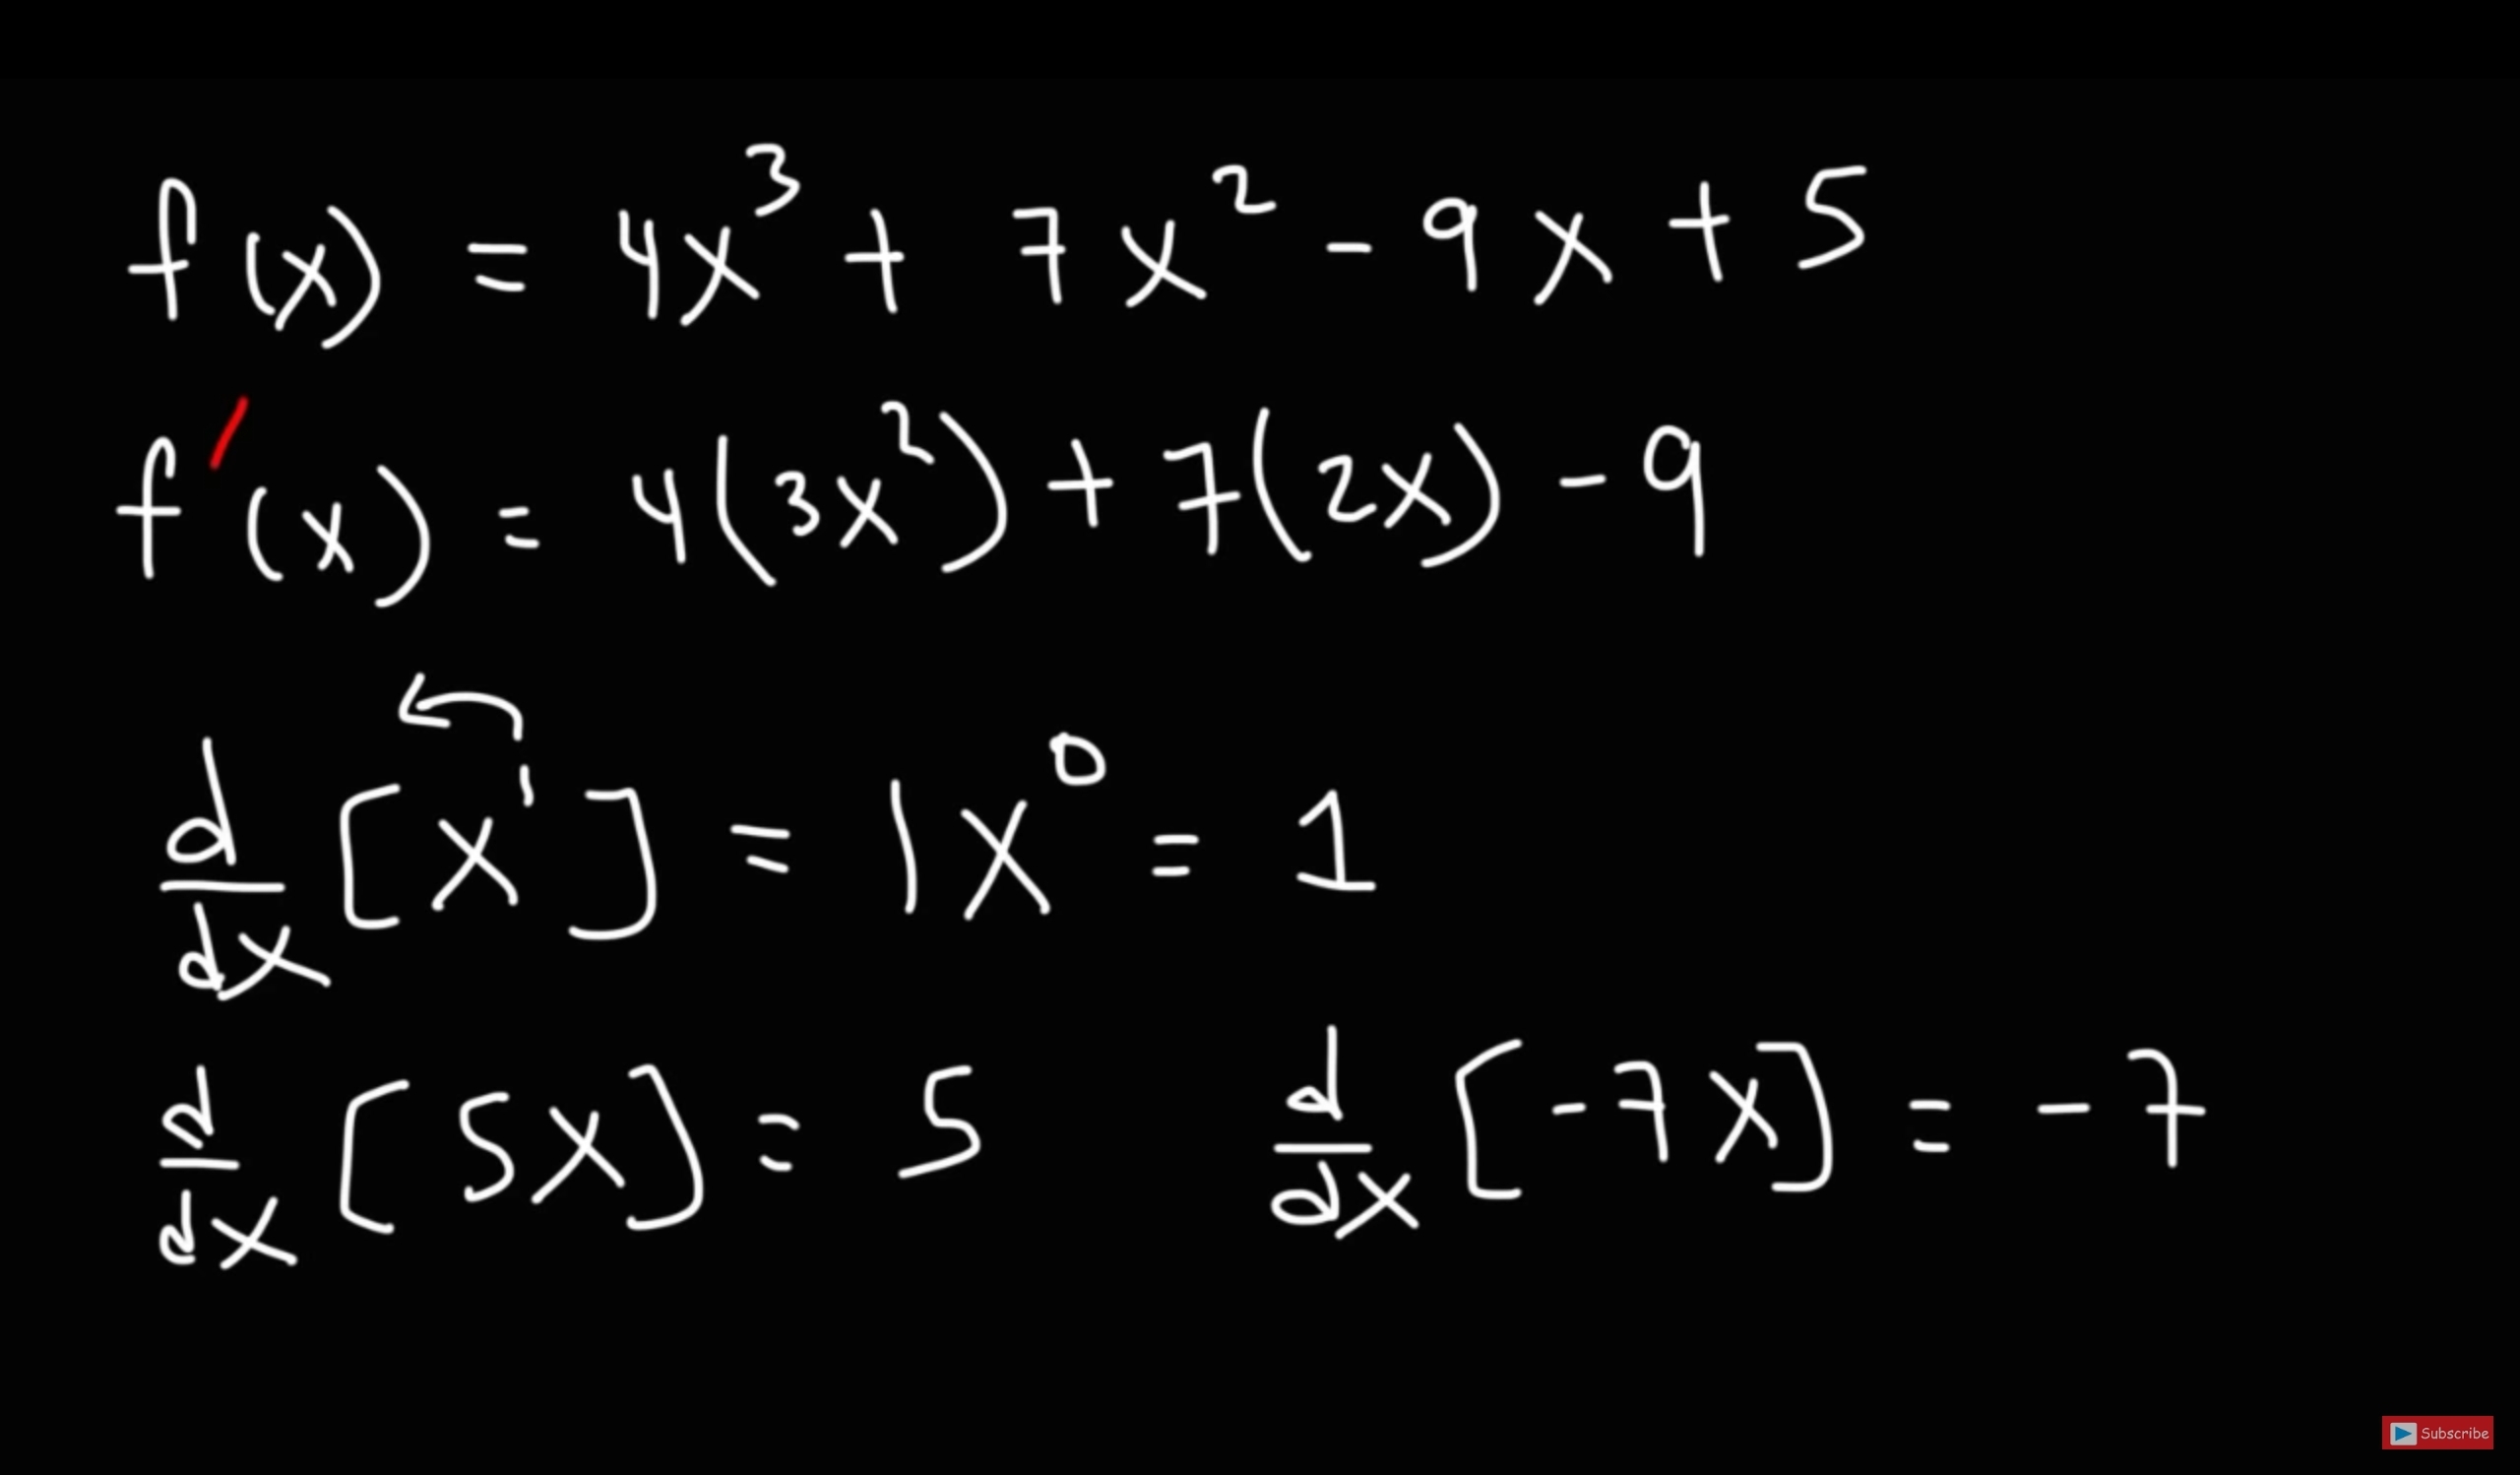 f(x) = 4x³ + 7x² - 9x + 5
f'(x) = 4(3x²) + 7(2x) - 9
d/dx [x¹] = 1x⁰ = 1
d/dx [5x] = 5 d/dx [-7x] = -7
Subscribe